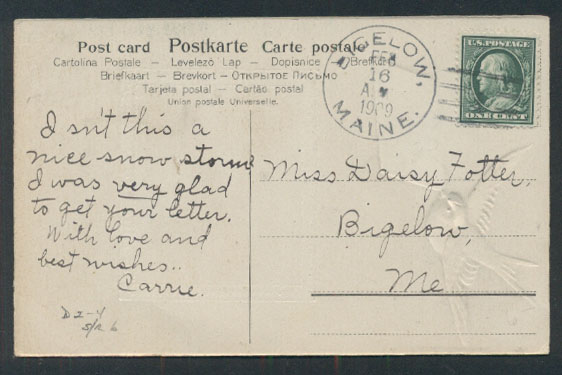 Post card Postkarte Carte postale
Cartolina Postale – Levelező Lap – Dopisnice – Brefkort
Briefkaart – Brevkort – Открытое Письмо
Tarjeta postal – Cartão postal
Union postale Universelle.
BIGELOW,
FEB
16
1909
MAINE.
U.S. POSTAGE
ONE CENT
Isn't this a
nice snow storm
I was very glad
to get your letter.
With love and
best wishes..
Carrie.
Miss Daisy Fotter,
Bigelow,
Me
D2-4